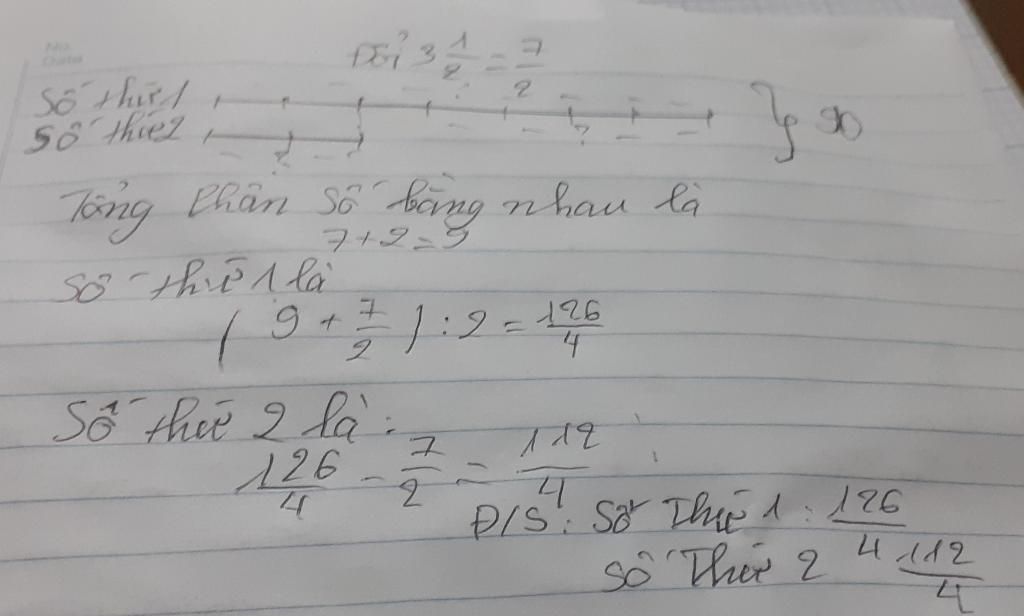 No.
Date
Đổi 3 1/2 = 7/2
Số thứ 1
Số thứ 2
?
?
Tổng phân số bằng nhau là
7 + 2 = 9
Số thứ 1 là
( 9 + 7/2 ) : 2 = 126/4
Số thứ 2 là :
126/4 - 7/2 = 112/4
Đ/S : Số Thứ 1 : 126/4
Số Thứ 2 112/4